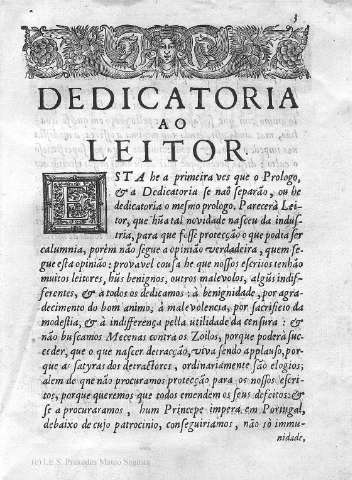 3
DEDICATORIA
AO
LEITOR.
ESTA he a primeira ves que o Prologo,
& a Dedicatoria se naõ separão, ou he
dedicatoria o mesmo prologo. Parecerà Lei-
tor, que hũa tal novidade nasceu da indus-
tria, para que fosse protecção o que podia ser
calumnia, porèm não segue a opinião verdadeira, quem se-
gue esta opinião: provavel cousa he que nossos escritos tenhão
muitos leitores, hũs benignos, outros malevolos, algũs indif-
ferentes, & a todos os dedicamos: à benignidade, por agra-
decimento do bom animo, à malevolencia, por sacrificio da
modestia, & à indifferença pella utilidade da censura: &
não buscamos Mecenas contra os Zoilos, porque poderà su-
ceder, que o que nascer detracção, viva sendo applauso, por-
que as satyras dos detractores, ordinariamente são elogios;
alem de que não procuramos protecção para os nossos escri-
tos, porque queremos que todos emendem os seus defeitos: &
se a procuraramos, hum Principe impera em Portugal,
debaixo de cujo patrocinio, conseguiriamos, não sò immu-
nidade,
(c) I.E.S. Práxedes Mateo Sagasta